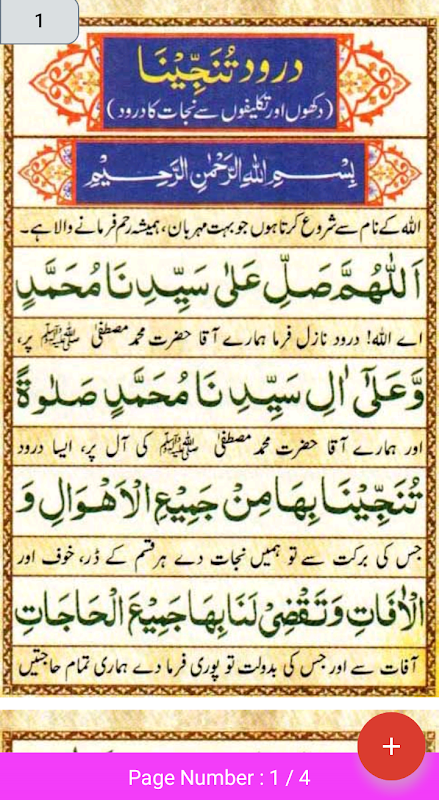 1
درود تُنَجِّیْنَا
(دکھوں اور تکلیفوں سے نجات کا درود)
بِسْمِ اللهِ الرَّحْمٰنِ الرَّحِيْمِ
اللہ کے نام سے شروع کرتا ہوں جو بہت مہربان، ہمیشہ رحم فرمانے والا ہے۔
اَللّٰهُمَّ صَلِّ عَلٰی سَيِّدِنَا مُحَمَّدٍ
اے اللہ! درود نازل فرما ہمارے آقا حضرت محمد مصطفٰی ﷺ پر،
وَّعَلٰٓی اٰلِ سَيِّدِنَا مُحَمَّدٍ صَلٰوةً
اور ہمارے آقا حضرت محمد مصطفٰی ﷺ کی آل پر، ایسا درود
تُنَجِّيْنَا بِهَا مِنْ جَمِيْعِ الْاَهْوَالِ وَ
جس کی برکت سے تو ہمیں نجات دے ہر قسم کے ڈر، خوف اور
الْاٰفَاتِ وَتَقْضِیْ لَنَا بِهَا جَمِيْعَ الْحَاجَاتِ
آفات سے اور جس کی بدولت تو پوری فرما دے ہماری تمام حاجتیں
+
Page Number : 1 / 4